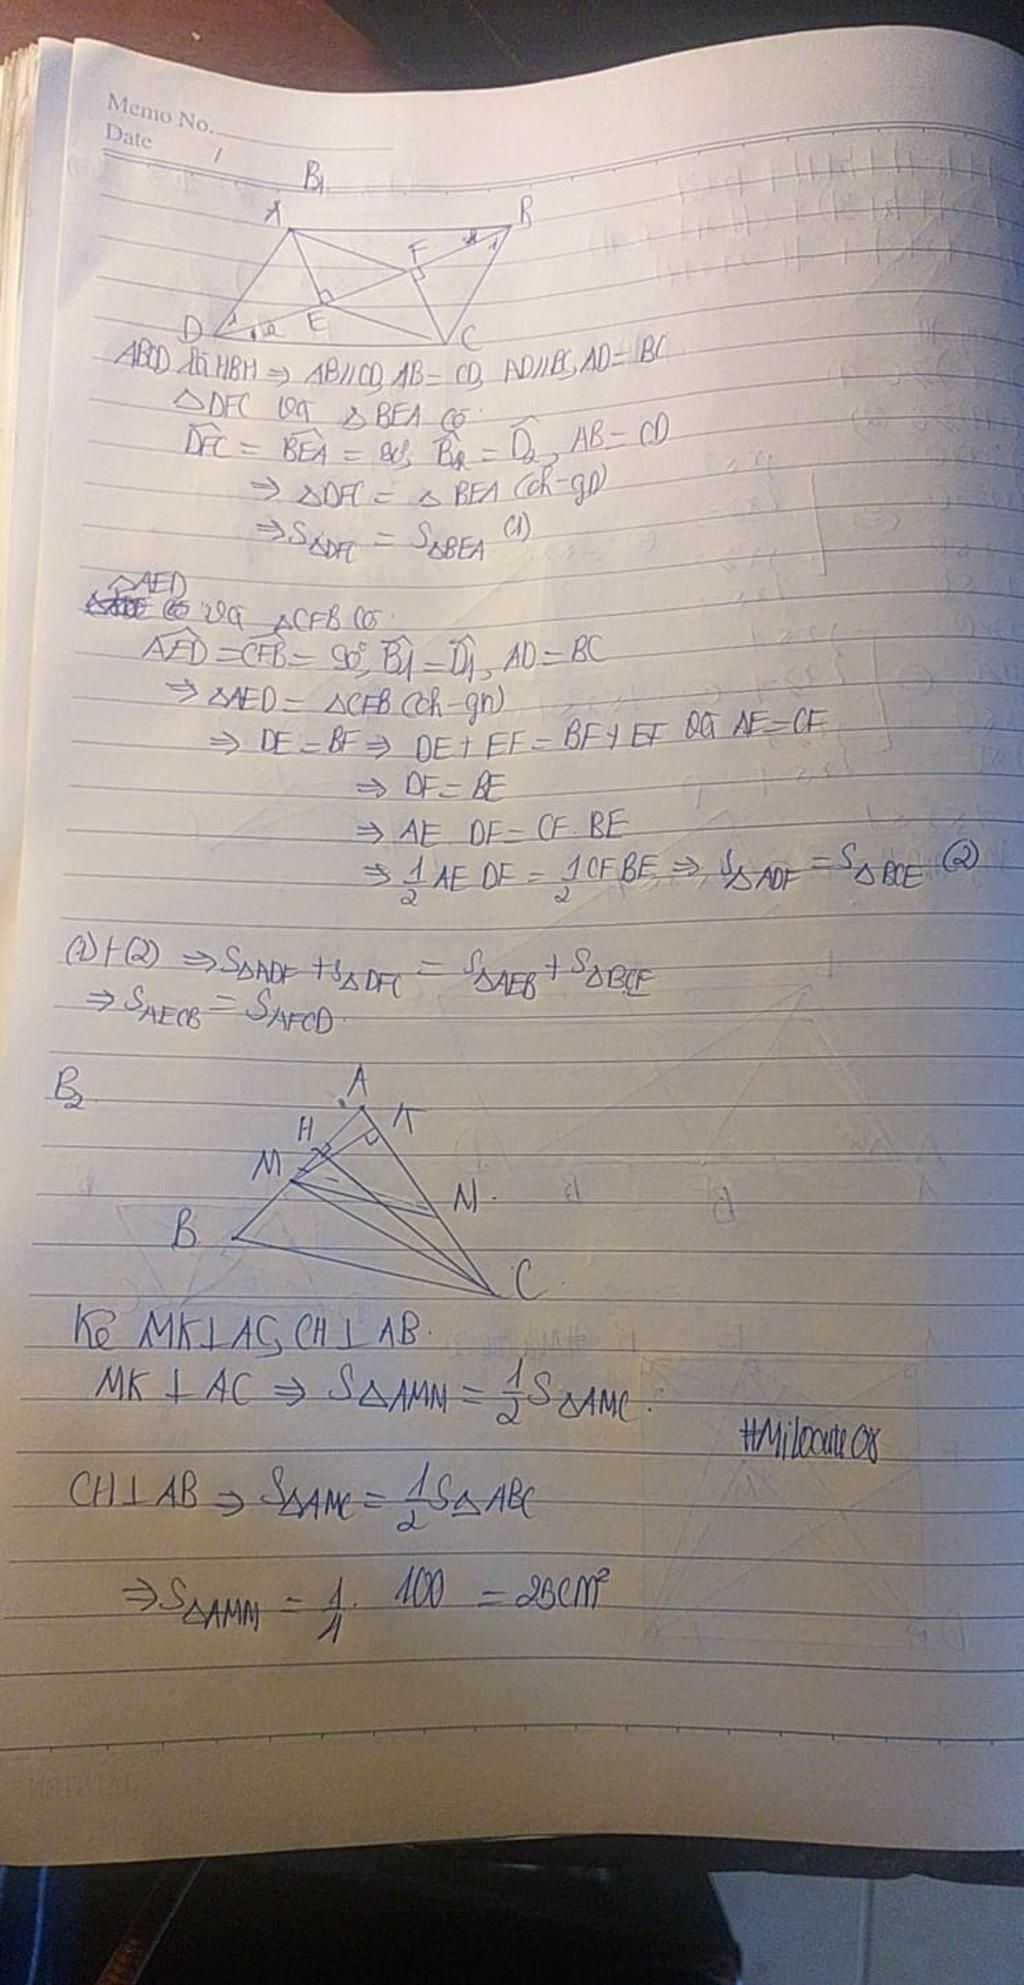 Memo No.
Date /
B1
A B
F 1
E
D 1 2 C
ABCD là HBH ⇒ AB//CD, AB = CD, AD//BC, AD = BC
△DFC và △BEA có:
DFC = BEA = 90°, B2 = D2, AB = CD
⇒ △DFC = △BEA (ch-gn)
⇒ S△DFC = S△BEA (1)
△AED
và △CFB có:
AED = CFB = 90°, B1 = D1, AD = BC
⇒ △AED = △CFB (ch-gn)
⇒ DE = BF ⇒ DE + EF = BF + EF và AE = CF
⇒ DF = BE
⇒ AE DF = CF. BE
⇒ 1/2 AE DF = 1/2 CF BE ⇒ S△ADF = S△BCE (2)
(1)+(2) ⇒ S△ADF + S△DFC = S△AEB + S△BCE
⇒ SAECB = SAFCD.
B2.
A
H K
M
N
B
C
Kẻ MK⊥AC, CH⊥AB.
MK ⊥ AC ⇒ S△AMN = 1/2 S△AMC.
#Milocute08
CH⊥AB ⇒ S△AMC = 1/2 S△ABC
⇒ S△AMN = 1/4. 100 = 25cm²